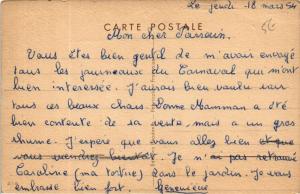 Le jeudi 18 mars 54
CARTE POSTALE
5€
Mon cher Parrain.
Vous êtes bien gentil de m'avoir envoyé
tous les journeaux du Carnaval qui m'ont
bien interessée. J'aurais bien voulu voir
tous ces beaux chars. Bonne Mamman a été
bien contente de sa vente mais a un gros
rhume. J'espère que vous allez bien et que
vous viendrez bientôt. Je n'ai pas retrouvé
Caroline (ma tortue) dans le jardin. Je vous
embrasse bien fort.